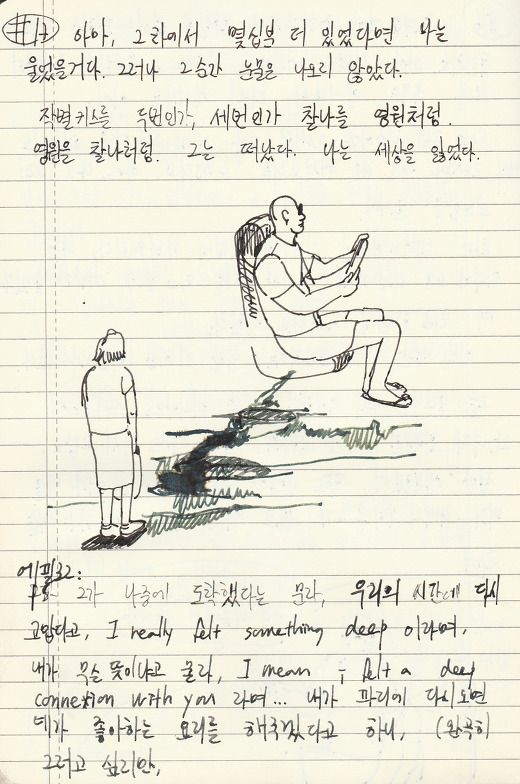 #17 아아, 그 자리에서 몇십분 더 있었다면 나는
울었을거다. 그러나 그순간 눈물은 나오지 않았다.
작별키스를 두번인가, 세번인가 찰나를 영원처럼.
영원을 찰나처럼. 그는 떠났다. 나는 세상을 잃었다.
에필32:
그가 나중에 도착했다는 문자, 우리의 시간에 다시
고맙다고, I really felt something deep 이라며,
내가 무슨 뜻이냐고 물라, I mean I felt a deep
connexion with you 라며... 내가 파리에 다시오면
네가 좋아하는 요리를 해주겠다고 하니, (완곡히
그러고 싶지만,